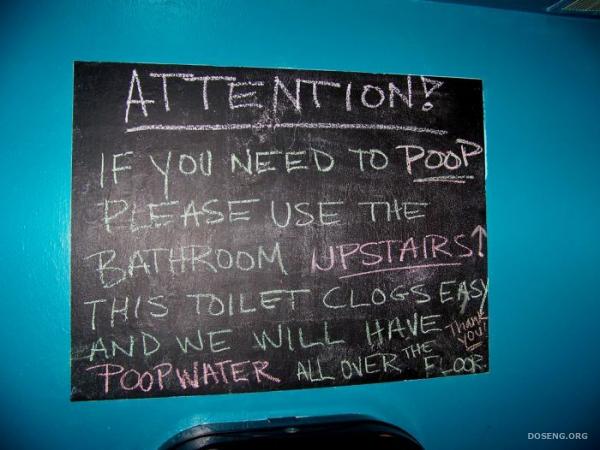 ATTENTION!
IF YOU NEED TO POOP
PLEASE USE THE
BATHROOM UPSTAIRS↑
THIS TOILET CLOGS EASY
AND WE WILL HAVE
POOPWATER ALL OVER THE FLOOR
Thank
you!
DOSENG.ORG